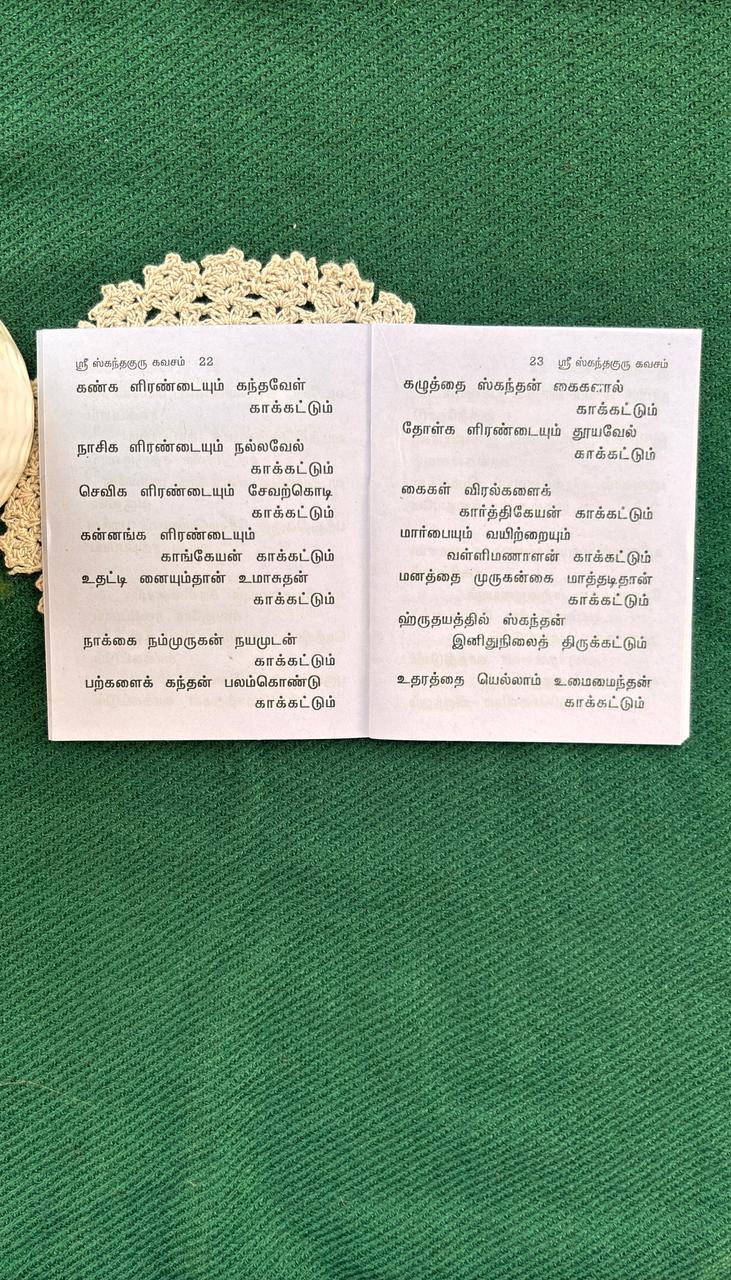 ஸ்ரீ ஸ்கந்தகுரு கவசம் 22
கண்க ளிரண்டையும் கந்தவேள்
காக்கட்டும்
நாசிக ளிரண்டையும் நல்லவேல்
காக்கட்டும்
செவிக ளிரண்டையும் சேவற்கொடி
காக்கட்டும்
கன்னங்க ளிரண்டையும்
காங்கேயன் காக்கட்டும்
உதட்டி னையும்தான் உமாசுதன்
காக்கட்டும்
நாக்கை நம்முருகன் நயமுடன்
காக்கட்டும்
பற்களைக் கந்தன் பலம்கொண்டு
காக்கட்டும்
23 ஸ்ரீ ஸ்கந்தகுரு கவசம்
கழுத்தை ஸ்கந்தன் கைகளால்
காக்கட்டும்
தோள்க ளிரண்டையும் தூயவேல்
காக்கட்டும்
கைகள் விரல்களைக்
கார்த்திகேயன் காக்கட்டும்
மார்பையும் வயிற்றையும்
வள்ளிமணாளன் காக்கட்டும்
மனத்தை முருகன்கை மாத்தடிதான்
காக்கட்டும்
ஹ்ருதயத்தில் ஸ்கந்தன்
இனிதுநிலைத் திருக்கட்டும்
உதரத்தை யெல்லாம் உமைமைந்தன்
காக்கட்டும்